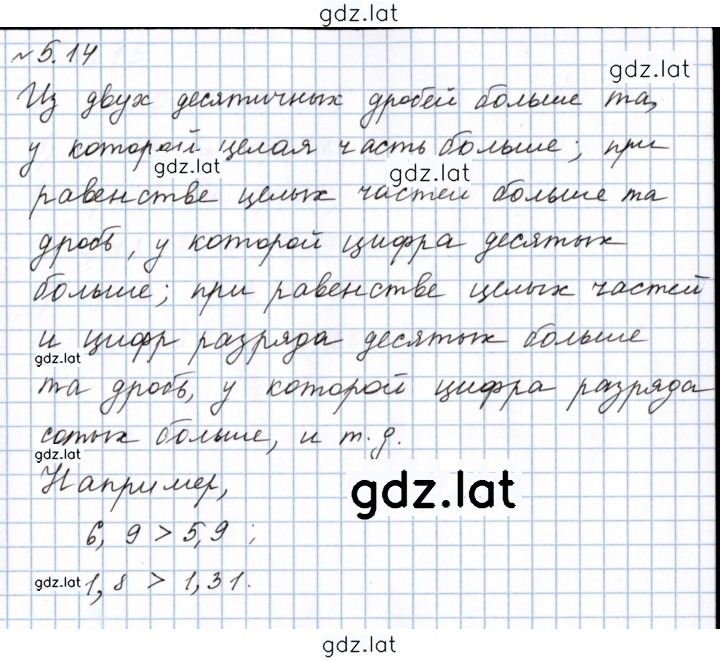 gdz.lat
№ 5.14
gdz.lat
Из двух десятичных дробей больше та,
у которой целая часть больше; при
gdz.lat
gdz.lat
равенстве целых частей больше та
дробь, у которой цифра десятых
больше; при равенстве целых частей
и цифр разряда десятых больше
gdz.lat
та дробь, у которой цифра разряда
сотых больше, и т. д.
gdz.lat
Например,
gdz.lat
6,9 > 5,9 ;
gdz.lat
1,8 > 1,31.
gdz.lat